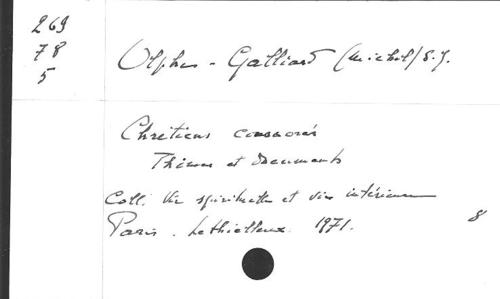 269
78
5
Olphe-Galliard (Michel) S.J.
Chrétiens consacrés
Thèmes et Documents
Coll. Vie spirituelle et vie intérieure
Paris. Lethielleux. 1971.
8